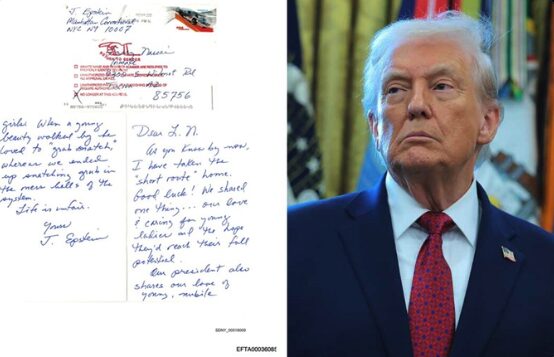 J. Epstein
Manhattan Correctional
NYC NY 10007
Nassar
TO SENDER
S. Wilmot Rd
85756
Dear L. N.
As you know by now,
I have taken the
"short route" home.
Good luck! We shared
one thing... our love
& caring for young
ladies and the hope
they'd reach their full
potential.
Our president also
shares our love of
young, nubile
girls. When a young
beauty walked by he
loved to "grab snatch,"
whereas we ended
up snatching grub in
the mess halls of the
system.
Life is unfair.
Yours
J. Epstein
EFTA00036085